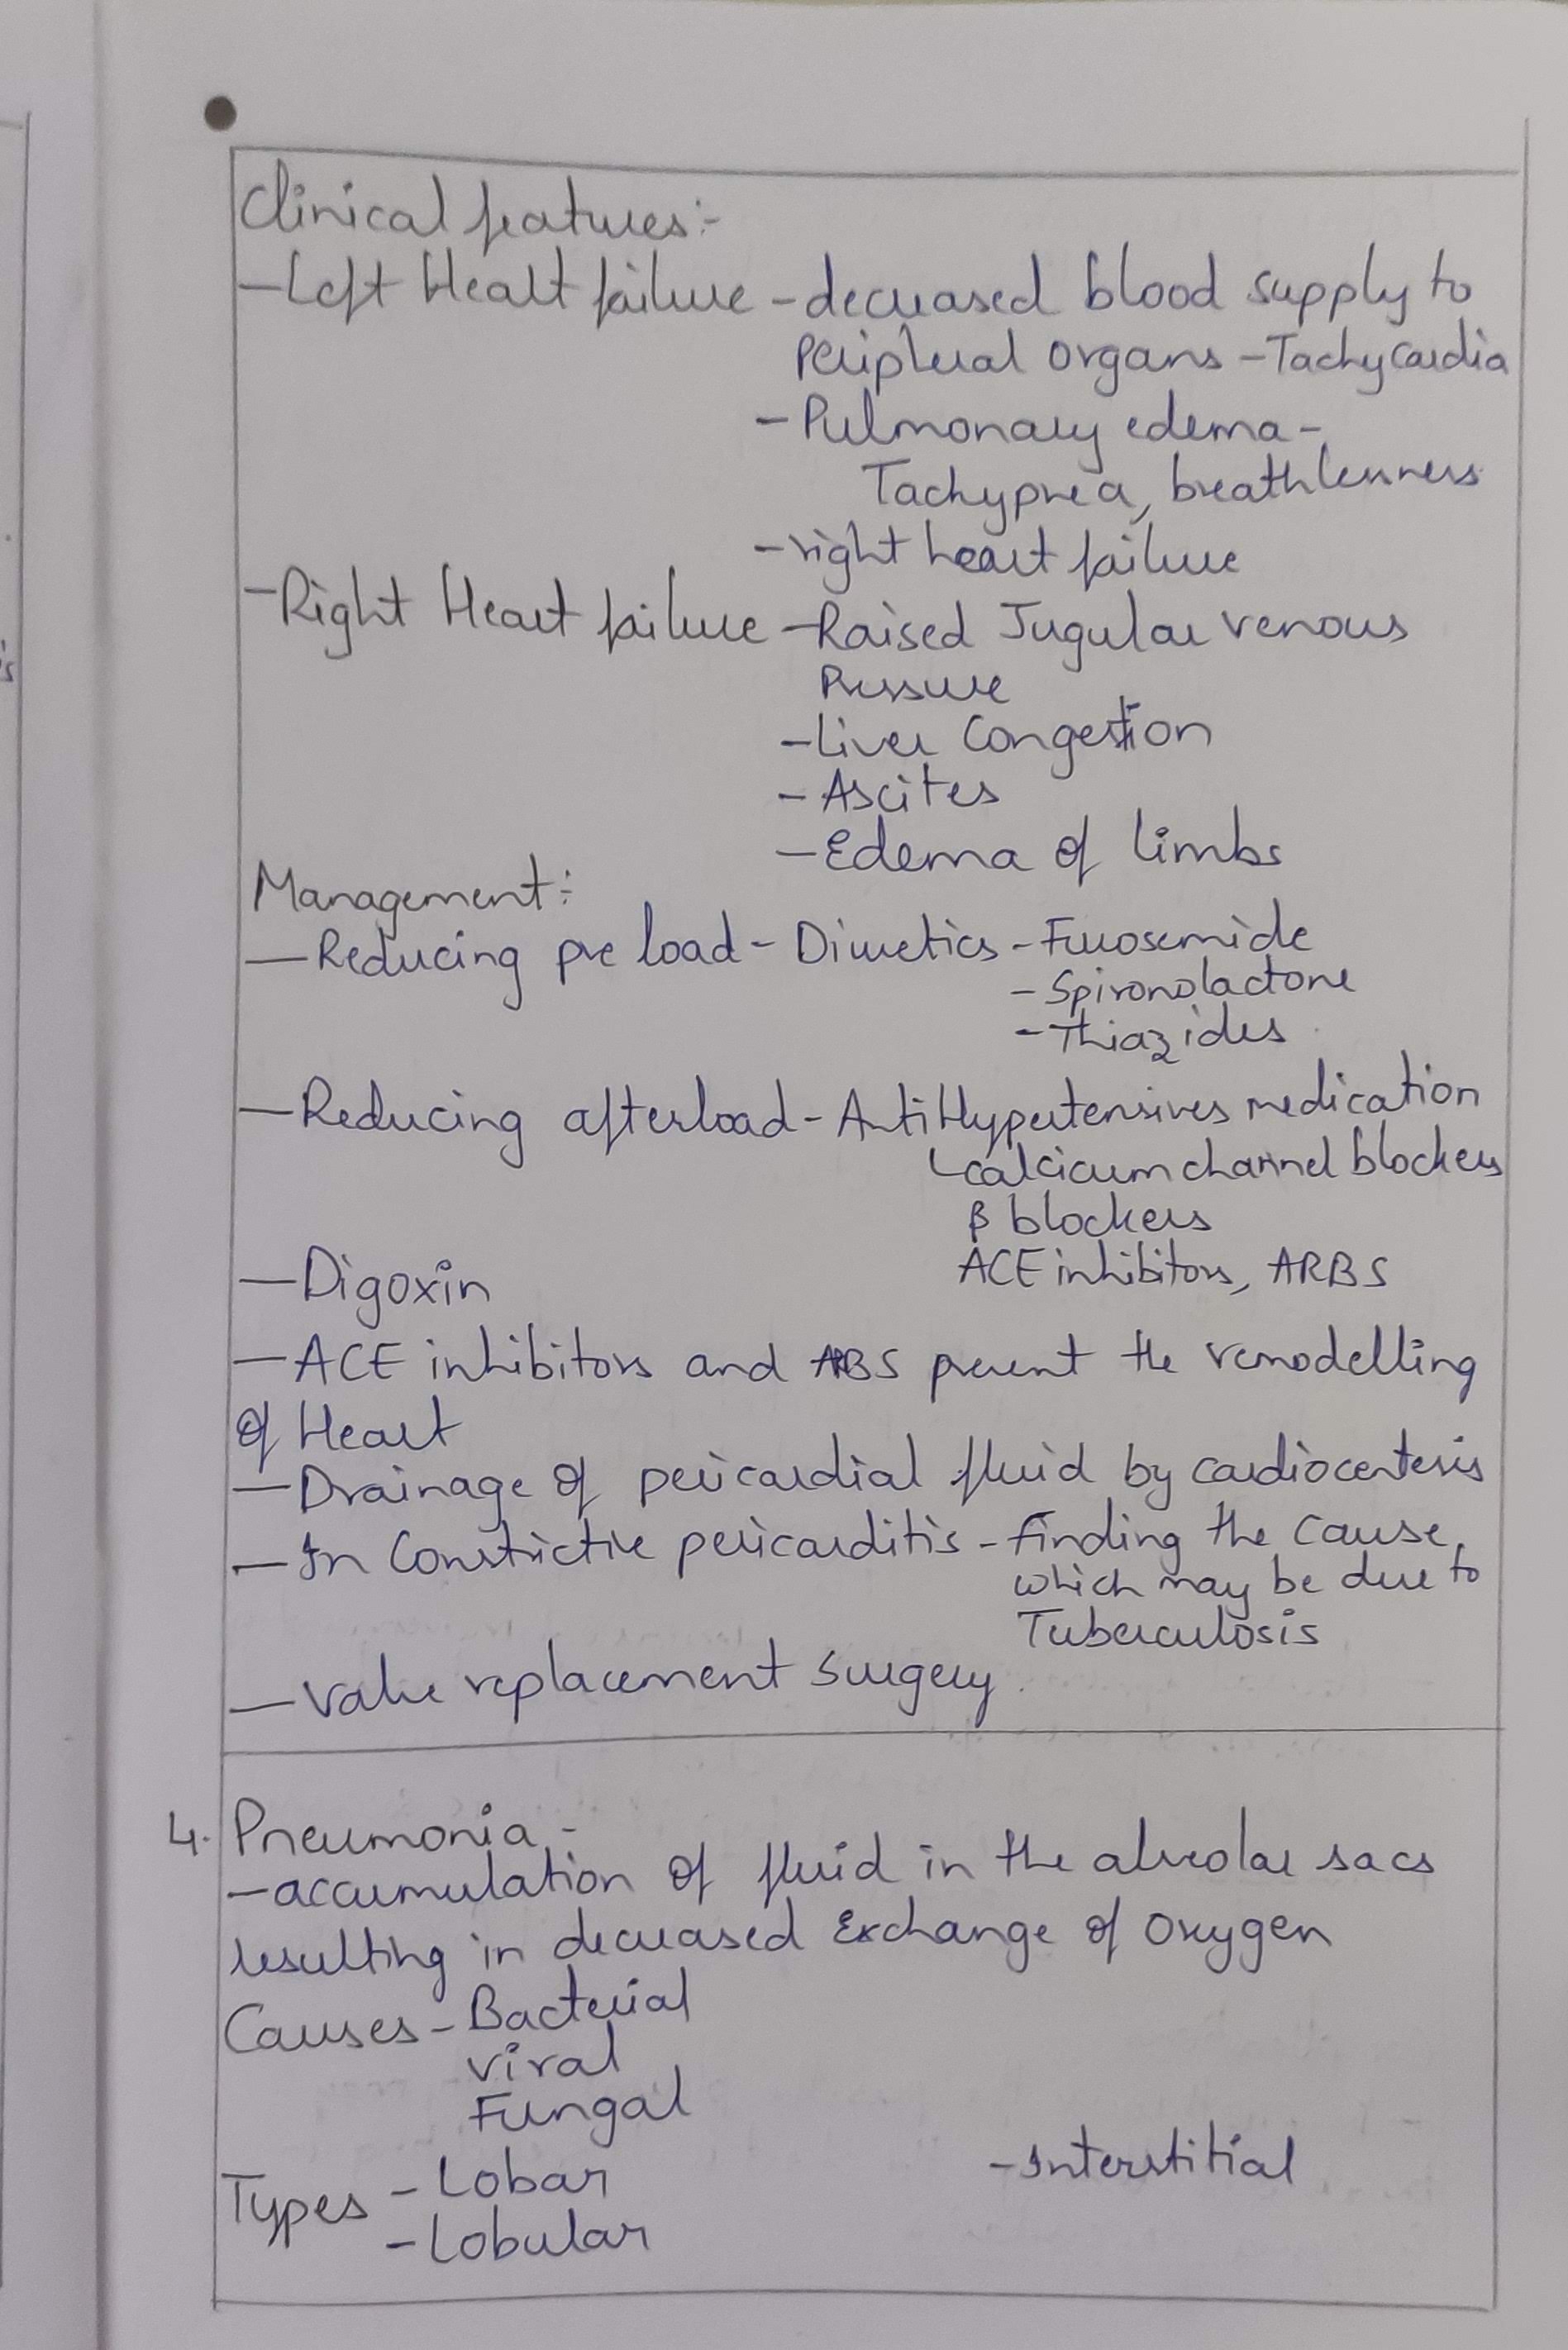 Clinical features:-
- Left Heart failure - decreased blood supply to
Peripheral organs - Tachycardia
- Pulmonary edema -
Tachypnea, breathlessness
- right heart failure
- Right Heart failure - Raised Jugular venous
Pressure
- Liver Congestion
- Ascites
- Edema of limbs
Management:-
- Reducing pre load - Diuretics - Furosemide
- Spironolactone
- Thiazides
- Reducing afterload - AntiHypertensives medication
calcium channel blockers
β blockers
- Digoxin
ACE inhibitors, ARBS
- ACE inhibitors and ARBS prevent the remodelling
of Heart
- Drainage of pericardial fluid by cardiocentesis
- In Constrictive pericarditis - finding the cause,
which may be due to
Tuberculosis
- Valve replacement surgery.
4. Pneumonia -
- accumulation of fluid in the alveolar sacs
resulting in decreased Exchange of oxygen
Causes - Bacterial
viral
Fungal
Types - Lobar - Interstitial
- Lobular